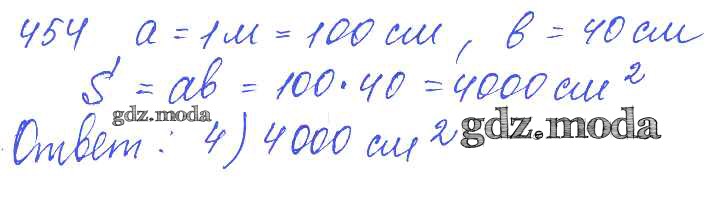 454 a = 1м = 100 см, в = 40 см
S = ab = 100 · 40 = 4000 см²
gdz.moda
Ответ: 4) 4000 см²
gdz.moda